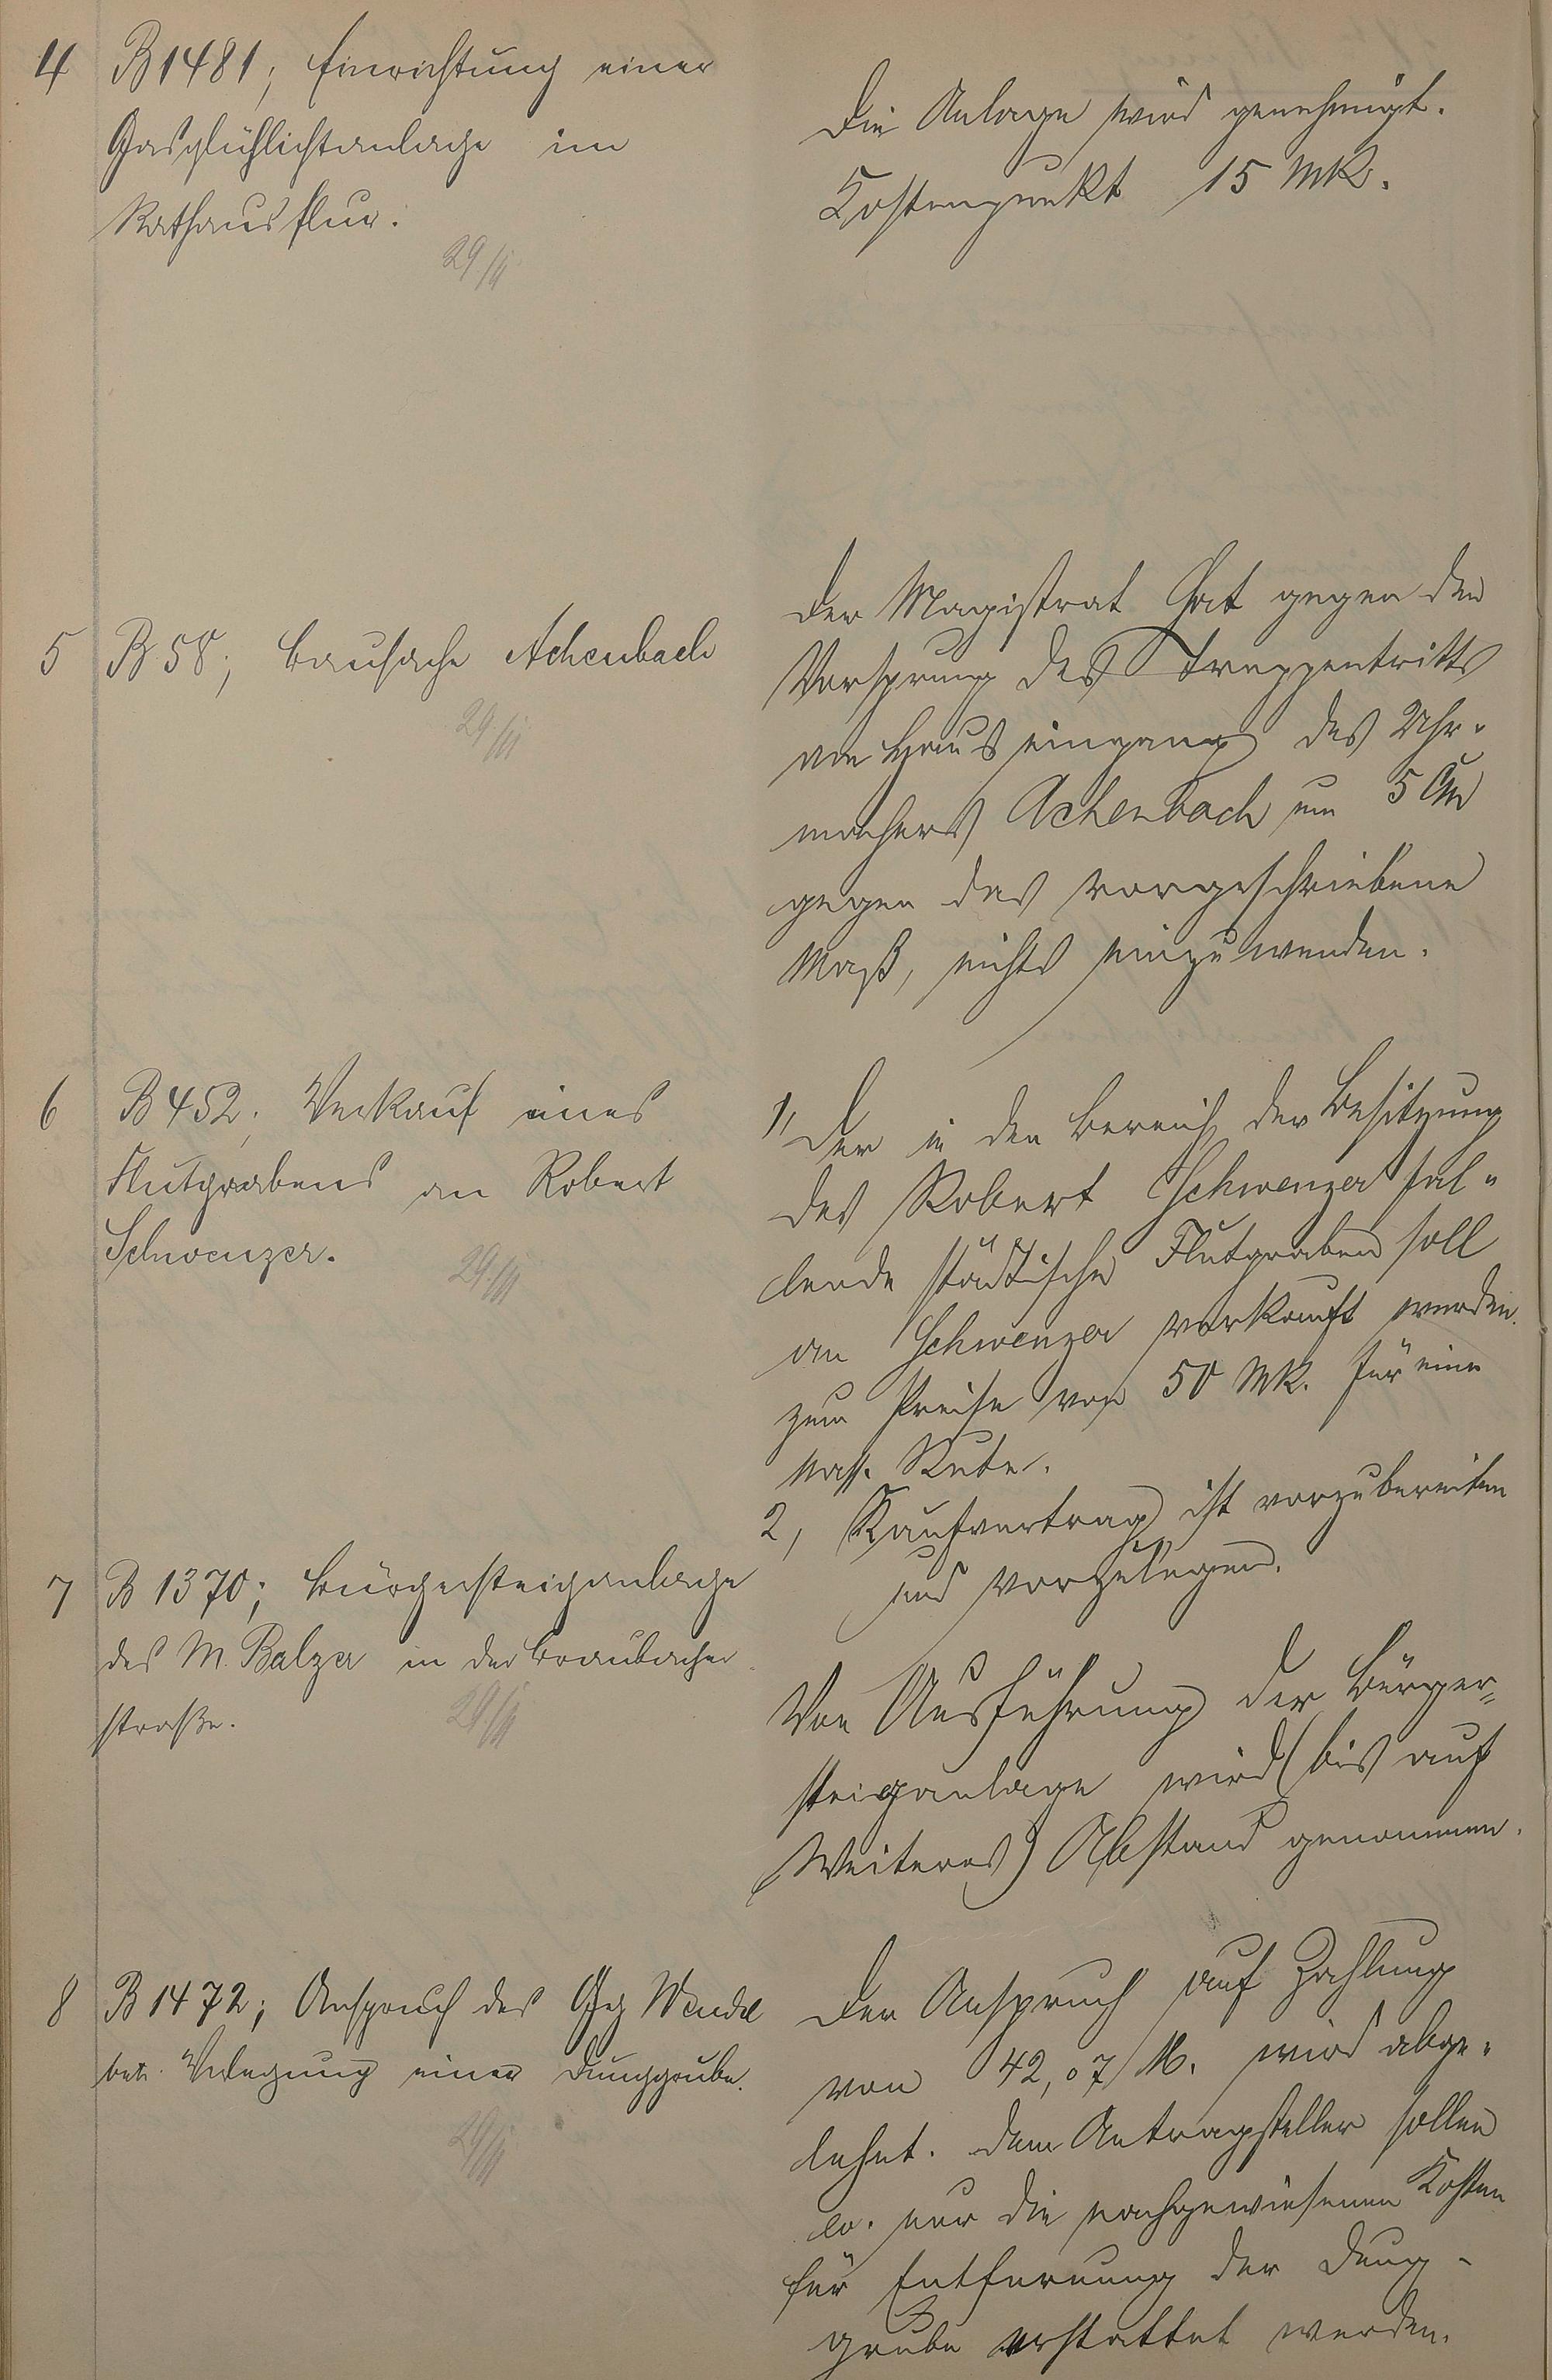 4 B 1481; Einrichtung einer
Gasglühlichtanlage im
Rathausflur.
29/II
Die Anlage wird genehmigt.
Kostenpunkt 15 Mk.
5 B 58; Bausache Achenbach
29/II
Der Magistrat hat gegen den
Vorsprung des Treppentritts
am Hauseingang des Uhr-
machers Achenbach um 5 Cm
gegen das vorgeschriebene
Maß, nichts einzuwenden.
6 B 452; Verkauf eines
Flutgrabens an Robert
Schwenzer.
29/II
1, Der in den Bereich der Besitzung
des Robert Schwenzer fal-
lende städtische Flutgraben soll
an Schwenzer verkauft werden
zum Preise von 50 Mk. für eine
nass. Rute.
2, Kaufvertrag ist vorzubereiten
und vorzulegen.
7 B 1370; Bürgersteiganlage
des M. Balzer in der Braubacher
straße.
29/II
Von Ausführung der Bürger-
steiganlage wird (bis auf
Weiteres) Abstand genommen.
8 B 1472; Anspruch des Gg Wendel
betr. Verlegung einer Dunggrube.
29/II
Der Anspruch auf Zahlung
von 42,07 M. wird abge-
lehnt. Dem Antragsteller sollen
nur die nachgewiesenen Kosten
für Entfernung der Dung-
grube erstattet werden.